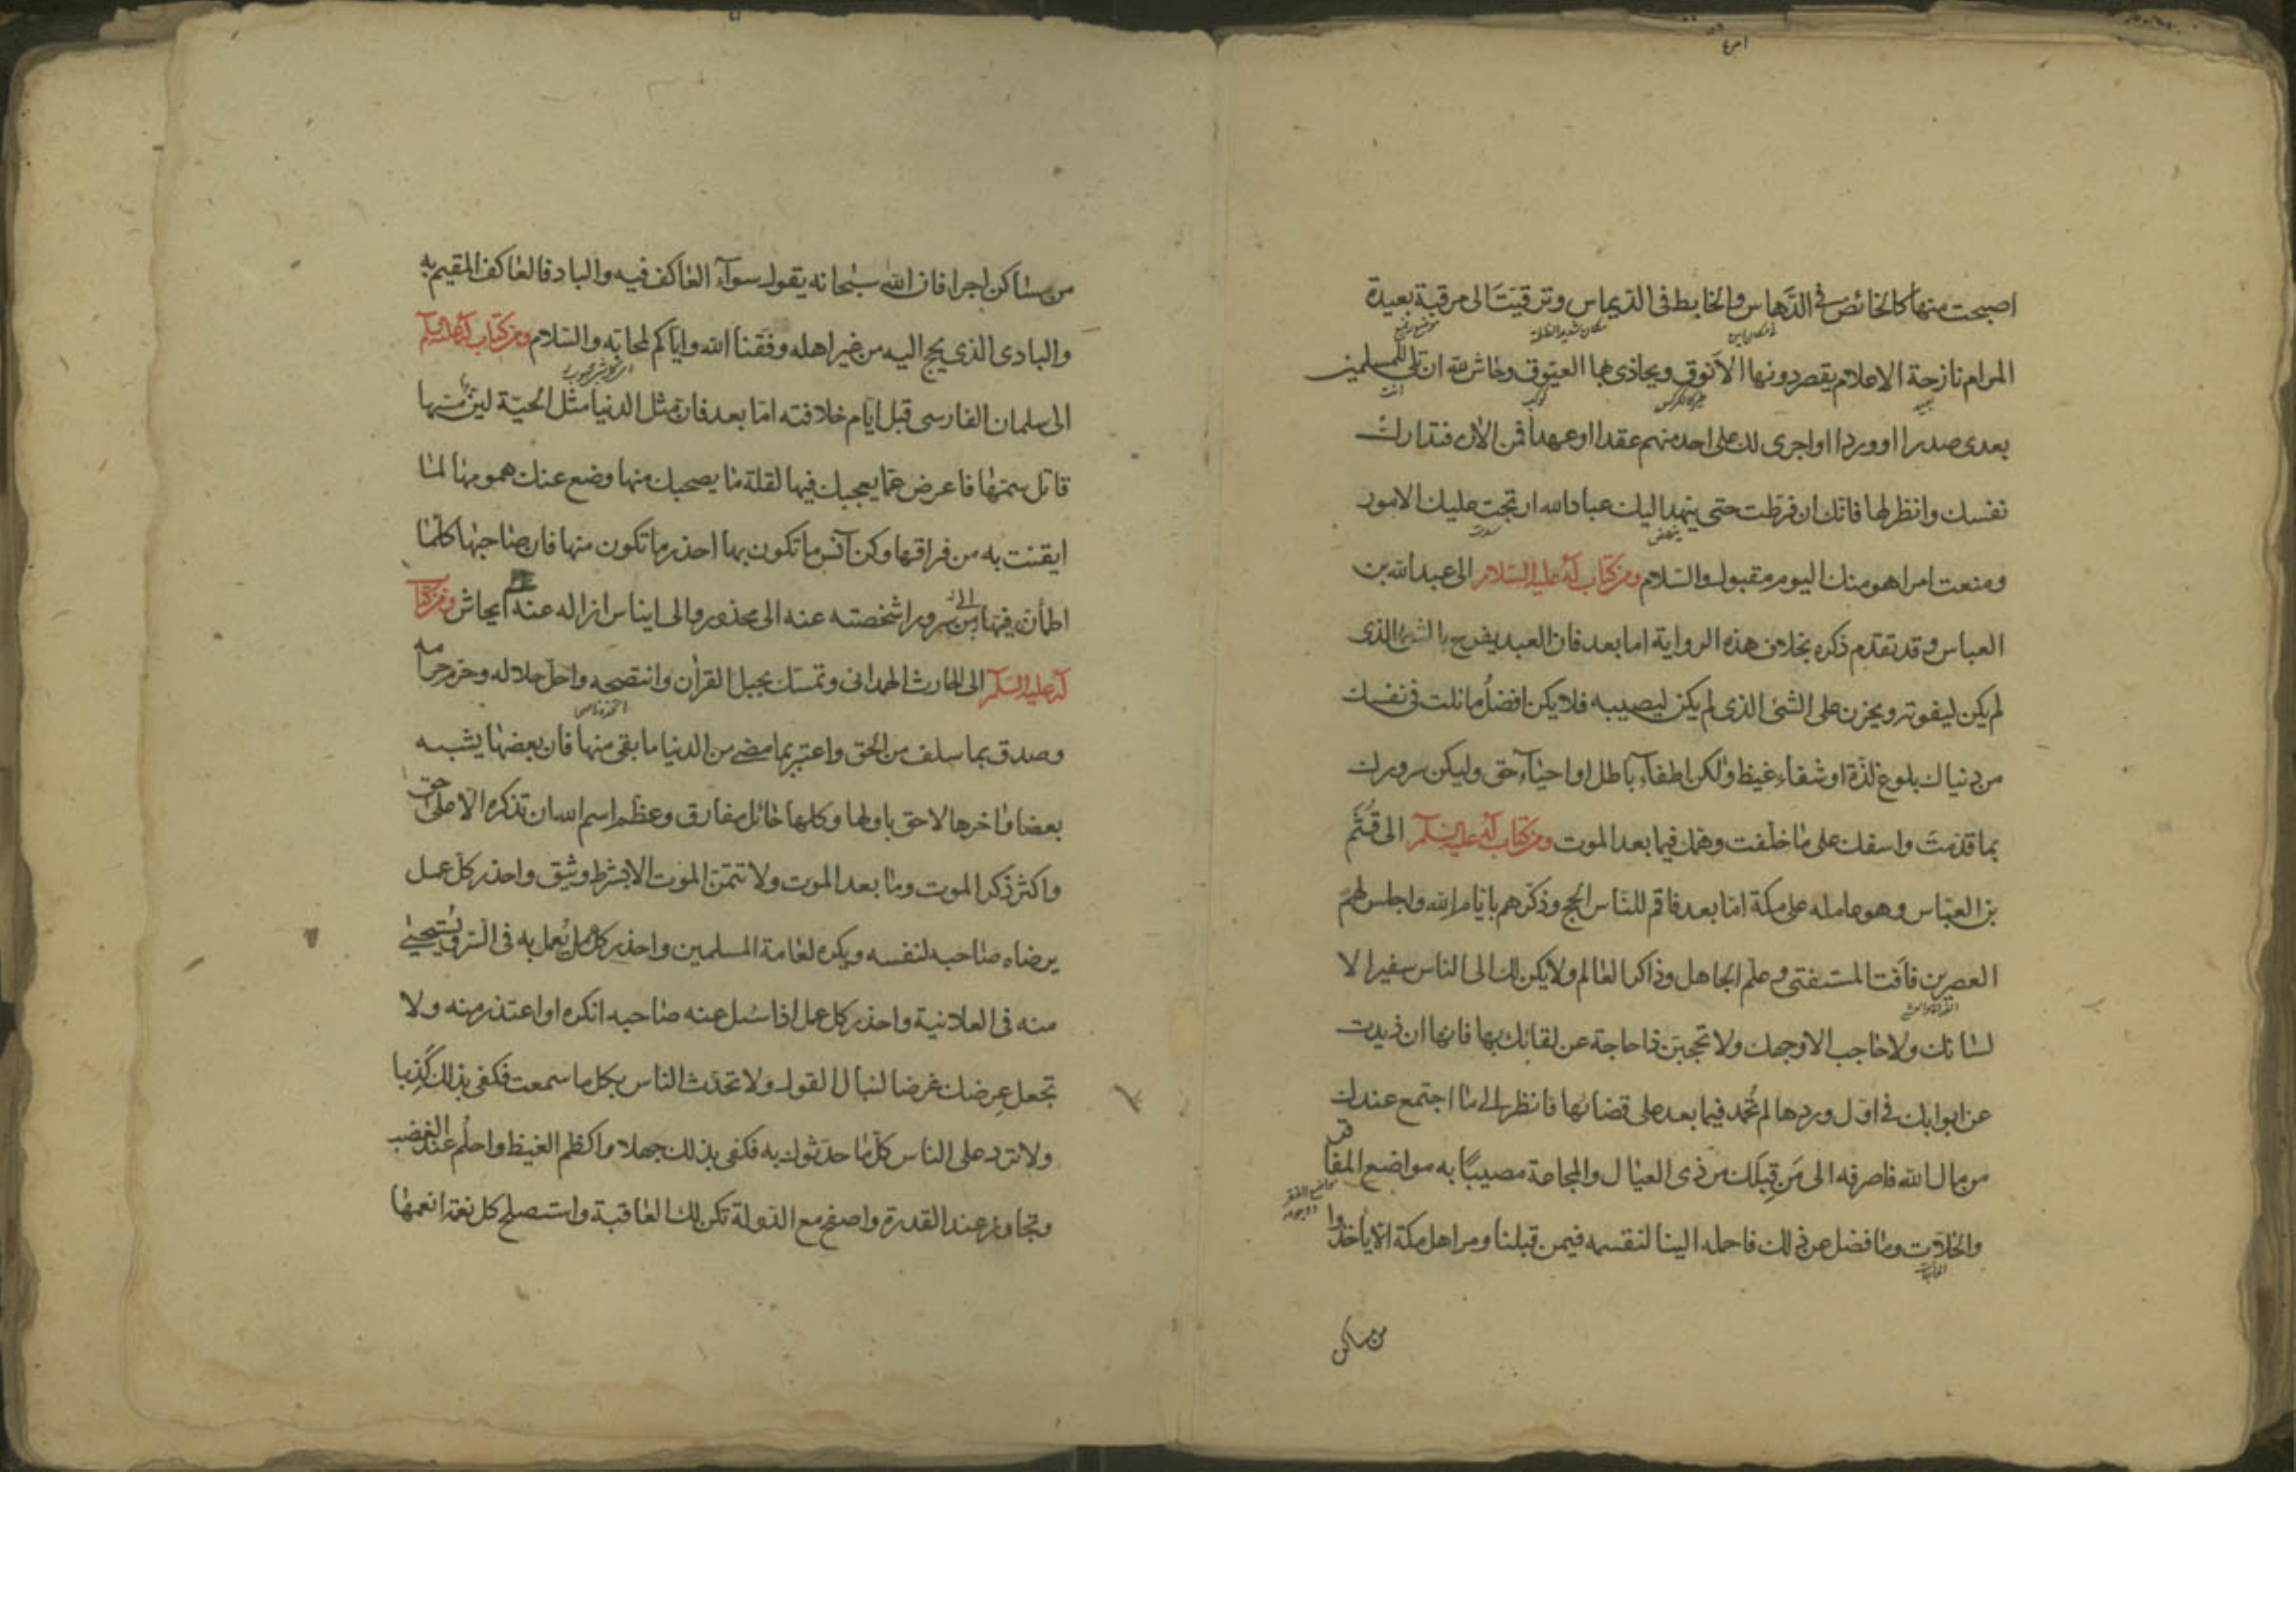 اصبحت منها كالخائض في الدَّهاس والخابط فى الديماس وترقيتَ الى مرقبة بعيدة
المرام نازحة الاعلام يقصر دونها الاَنوق ويحاذى بها العيّوق وحاش لله ان تلى للمسلمين
بعدى صدرا او وردا او اجرى لك على احد منهم عقدا او عهداً فمن الآن فتدارك
نفسك وانظر لها فانك ان فرّطت حتى ينهد اليك عباد الله ارتجت عليك الامور
ومنعت امرا هو منك اليوم مقبول والسّلام ومن كتاب له عليه السلام الى عبد الله بن
العباس وقد تقدم ذكره بخلاف هذه الرواية اما بعد فان العبد ليفرح بالشىء الذى
لم يكن ليفوته ويحزن على الشئ الذى لم يكن ليصيبه فلا يكن افضلُ ما نلت فى نفسك
من دنياك بلوغ لذّة او شفاء غيظ ولكن اطفاء باطل او احياء حق وليكن سرورك
بما قدّمتَ واسفك على ما خلّفت وهمّك فيما بعد الموت ومن كتاب له عليه السلم الى قُثَم
بن العبّاس وهو عامله على مكة امّا بعد فاقم للنّاس الحج وذكّرهم بايّام الله واجلس لهم
العصرين فاَفت المستفتى وعلّم الجاهل وذاكر العالم ولا يكن لك الى الناس سفيرا الا
لسانك ولا حاجب الا وجهك ولا تحجبنّ ذا حاجة عن لقائك بها فانها ان ذيدت
عن ابوابك فى اوّل وردها لم تُحمد فيما بعد على قضائها فانظر الى ما اجتمع عندك
من مال الله فاصرفه الى مَن قِبَلك من ذى العيال والمجاعة مصيبًا به مواضع المفاقر
والخَلّات وما فضل عن ذلك فاحمله الينا لنقسمه فيمن قبلنا ومر اهل مكة الّا ياخذوا
من ساكن
من ساكن اجرا فان الله سبحانه يقول سوآء العاكف فيه والباد فالعاكف المقيم به
والبادى الذى يحج اليه من غير اهله وفّقنا الله واياكم لمحابّه والسّلام ومن كتاب له عليه السلم
الى سلمان الفارسى قبل ايّام خلافته امّا بعد فان مثل الدنيا مثل الحيّة ليّن مسّها
قاتل سمّها فاعرض عمّا يعجبك فيها لقلة ما يصحبك منها وضع عنك همومها لما
ايقنت به من فراقها وكن آنس ما تكون بها احذر ما تكون منها فان صاحبها كلّما
اطمأن فيها الى سرور اشخصته عنه الى محذور والى ايناس ازاله عنه ايحاش ومن كتاب
له عليه السّلم الى الحارث الهمدانى وتمسّك بحبل القرأن وانتصحه واحلّ حلاله وحرّم حرامه
وصدق بما سلف من الحق واعتبر بما مضى من الدنيا ما بقى منها فان بعضها يشبه
بعضا واخرها لاحق باولها وكلها حائل مفارق وعظّم اسم الله ان تذكره الا على حق
واكثر ذكر الموت وما بعد الموت ولا تتمنّ الموت الا بشرط وثيق واحذر كل عمل
يرضاه صاحبه لنفسه ويكره لعامة المسلمين واحذر كل عمل يُعمل به فى السّر ويُستحيى
منه فى العلانية واحذر كل عمل اذا سُئل عنه صاحبه انكره او اعتذر منه ولا
تجعل عِرضك غرضا لنبال القول ولا تحدّث الناس بكل ما سمعت فكفى بذلك كَذِبا
ولا تردّ على الناس كلّ ما حدّثوك به فكفى بذلك جهلا واكظم الغيظ واحلُم عند الغضب
وتجاوز عند القدرة واصفح مع الدّولة تكن لك العاقبة واستصلح كل نعمة انعمها